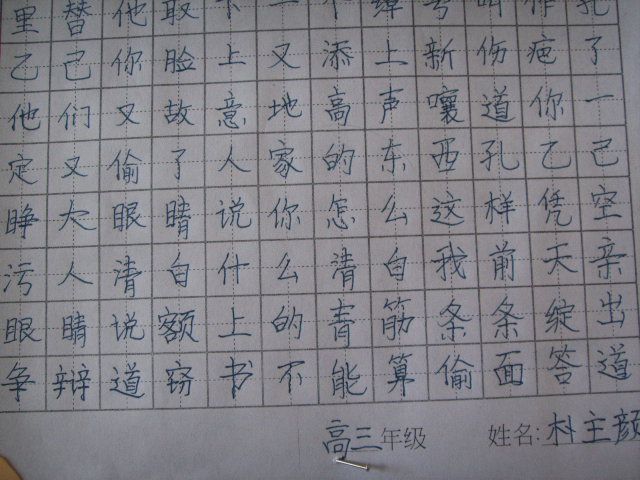 里替他取下一个绰号叫作孔
乙己你脸上又添上新伤疤了
他们又故意地高声嚷道你一
定又偷了人家的东西孔乙己
睁大眼睛说你怎么这样凭空
污人清白什么清白我前天亲
眼睛说额上的青筋条条绽出
争辩道窃书不能算偷面答道
高三年级 姓名:朴主颜